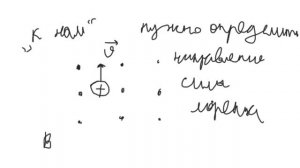 „К нам“ нужно определить
v направление
+ силы
Лоренца
B